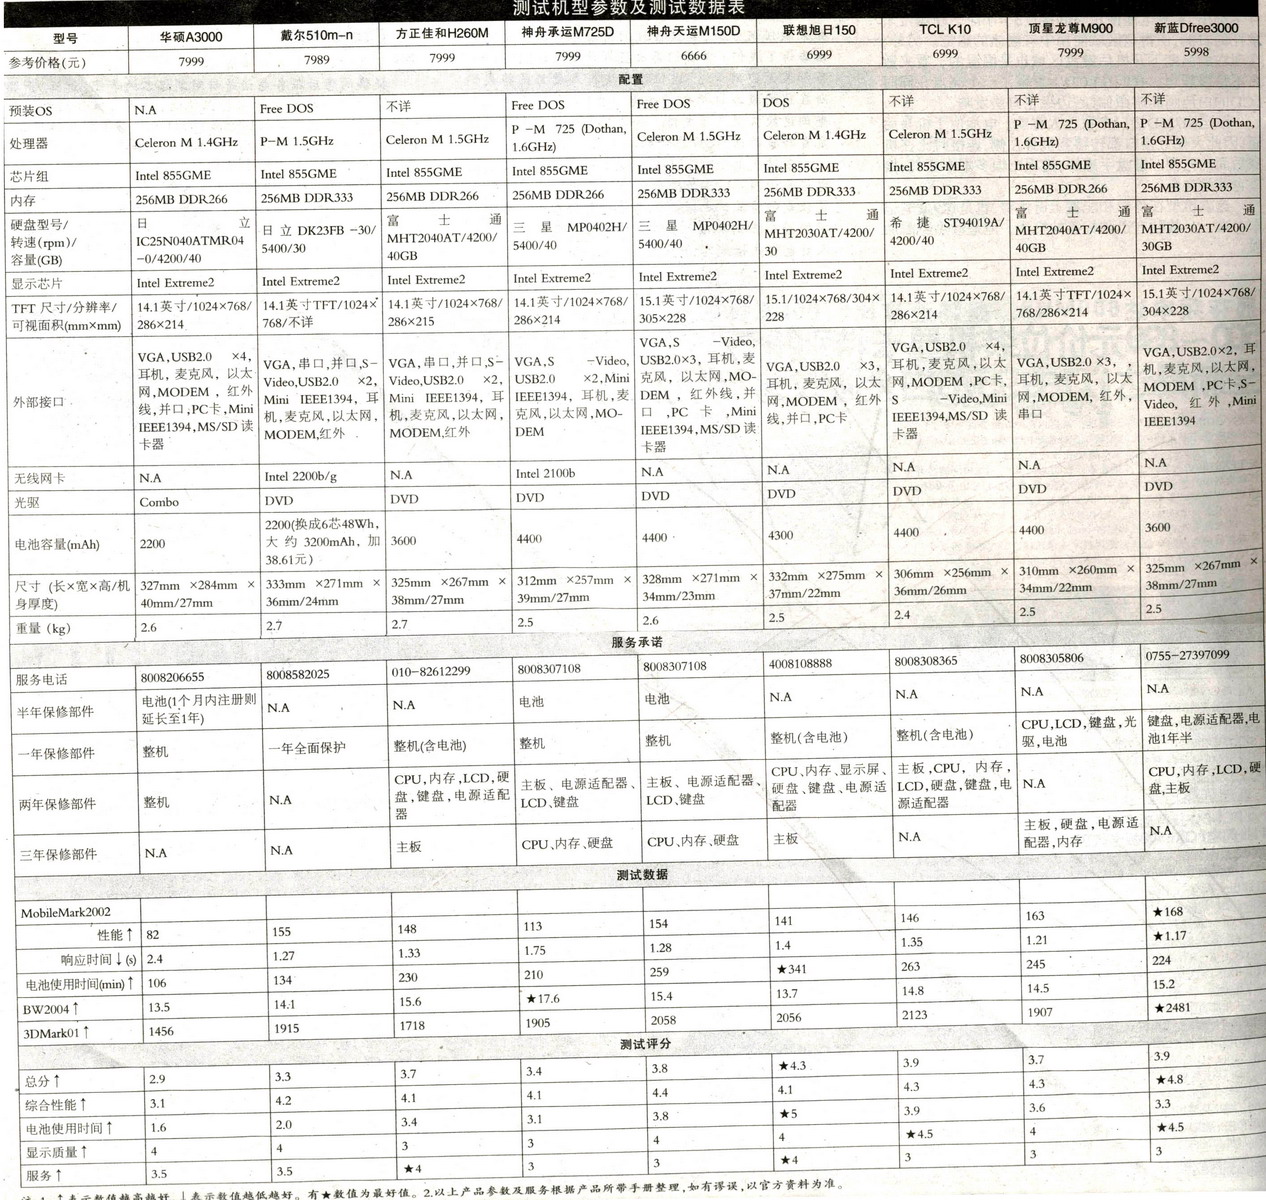 测试机型参数及测试数据表
型号 华硕A3000 戴尔510m-n 方正佳和H260M 神舟承运M725D 神舟天运M150D 联想旭日150 TCL K10 顶星龙尊M900 新蓝Dfree3000
参考价格(元) 7999 7989 7999 7999 6666 6999 6999 7999 5998
配置
预装OS N.A Free DOS 不详 Free DOS Free DOS DOS 不详 不详 不详
处理器 Celeron M 1.4GHz P-M 1.5GHz Celeron M 1.5GHz P -M 725 (Dothan, 1.6GHz) Celeron M 1.5GHz Celeron M 1.4GHz Celeron M 1.5GHz P -M 725 (Dothan, 1.6GHz) P -M 725 (Dothan, 1.6GHz)
芯片组 Intel 855GME Intel 855GME Intel 855GME Intel 855GME Intel 855GME Intel 855GME Intel 855GME Intel 855GME Intel 855GME
内存 256MB DDR266 256MB DDR333 256MB DDR266 256MB DDR266 256MB DDR333 256MB DDR333 256MB DDR333 256MB DDR266 256MB DDR333
硬盘型号/转速(rpm)/容量(GB) 日立 IC25N040ATMR04-0/4200/40 日立 DK23FB -30/5400/30 富士通 MHT2040AT/4200/40GB 三星 MP0402H/5400/40 三星 MP0402H/5400/40 富士通 MHT2030AT/4200/30 希捷 ST94019A/4200/40 富士通 MHT2040AT/4200/40GB 富士通 MHT2030AT/4200/30GB
显示芯片 Intel Extreme2 Intel Extreme2 Intel Extreme2 Intel Extreme2 Intel Extreme2 Intel Extreme2 Intel Extreme2 Intel Extreme2 Intel Extreme2
TFT 尺寸/分辨率/可视面积(mm×mm) 14.1英寸/1024×768/286×214 14.1英寸TFT/1024×768/不详 14.1英寸/1024×768/286×215 14.1英寸/1024×768/286×214 15.1英寸/1024×768/305×228 15.1/1024×768/304×228 14.1英寸/1024×768/286×214 14.1英寸TFT/1024×768/286×214 15.1英寸/1024×768/304×228
外部接口 VGA,USB2.0 ×4,耳机,麦克风,以太网,MODEM,红外线,并口,PC卡,Mini IEEE1394,MS/SD 读卡器 VGA,串口,并口,S-Video,USB2.0 ×2,Mini IEEE1394,耳机,麦克风,以太网,MODEM,红外 VGA,串口,并口,S-Video,USB2.0 ×2,Mini IEEE1394,耳机,麦克风,以太网,MODEM,红外 VGA,S -Video,USB2.0 ×2,Mini IEEE1394,耳机,麦克风,以太网,MO-DEM VGA,S -Video,USB2.0×3,耳机,麦克风,以太网,MO-DEM,红外线,并口,PC卡,Mini IEEE1394,MS/SD 读卡器 VGA,USB2.0 ×3,耳机,麦克风,以太网,MODEM,红外线,并口,PC卡 VGA,USB2.0 ×4,耳机,麦克风,以太网,MODEM,PC卡,S -Video,Mini IEEE1394,MS/SD 读卡器 VGA,USB2.0 ×3,,耳机,麦克风,以太网,MODEM,红外,串口 VGA,USB2.0×2,耳机,麦克风,以太网,MODEM,PC卡,S-Video,红外,Mini IEEE1394
无线网卡 N.A Intel 2200b/g N.A Intel 2100b N.A N.A N.A N.A N.A
光驱 Combo DVD DVD DVD DVD DVD DVD DVD DVD
电池容量(mAh) 2200 2200(换成6芯48Wh,大约3200mAh,加38.61元) 3600 4400 4400 4300 4400 4400 3600
尺寸 (长×宽×高/机身厚度) 327mm ×284mm × 40mm/27mm 333mm ×271mm × 36mm/24mm 325mm ×267mm × 38mm/27mm 312mm ×257mm × 39mm/27mm 328mm ×271mm × 34mm/23mm 332mm ×275mm × 37mm/22mm 306mm ×256mm × 36mm/26mm 310mm ×260mm × 34mm/22mm 325mm ×267mm × 38mm/27mm
重量 (kg) 2.6 2.7 2.7 2.5 2.6 2.5 2.4 2.5 2.5
服务承诺
服务电话 8008206655 8008582025 010-82612299 8008307108 8008307108 4008108888 8008308365 8008305806 0755-27397099
半年保修部件 电池(1个月内注册则延长至1年) N.A N.A 电池 电池 N.A N.A N.A N.A
一年保修部件 整机 一年全面保护 整机(含电池) 整机 整机 整机(含电池) 整机(含电池) CPU,LCD,键盘,光驱,电池 键盘,电源适配器,电池1年半
两年保修部件 整机 N.A CPU,内存,LCD,硬盘,键盘,电源适配器 主板、电源适配器、LCD、键盘 主板、电源适配器、LCD、键盘 CPU、内存、显示屏、硬盘、键盘、电源适配器 主板,CPU,内存,LCD,硬盘,键盘,电源适配器 N.A CPU,内存,LCD,硬盘,主板
三年保修部件 N.A N.A 主板 CPU、内存、硬盘 CPU、内存、硬盘 主板 N.A 主板,硬盘,电源适配器,内存 N.A
测试数据
MobileMark2002
性能↑ 82 155 148 113 154 141 146 163 ★168
响应时间↓(s) 2.4 1.27 1.33 1.75 1.28 1.4 1.35 1.21 ★1.17
电池使用时间(min)↑ 106 134 230 210 259 ★341 263 245 224
BW2004↑ 13.5 14.1 15.6 ★17.6 15.4 13.7 14.8 14.5 15.2
3DMark01↑ 1456 1915 1718 1905 2058 2056 2123 1907 ★2481
测试评分
总分↑ 2.9 3.3 3.7 3.4 3.8 ★4.3 3.9 3.7 3.9
综合性能↑ 3.1 4.2 4.1 4.1 4.4 4.1 4.3 4.3 ★4.8
电池使用时间↑ 1.6 2.0 3.4 3.1 3.8 ★5 3.9 3.6 3.3
显示质量↑ 4 4 3 3 4 4 ★4.5 4 ★4.5
服务↑ 3.5 3.5 ★4 3 3 ★4 3 3 3
注:1.↑表示数值越高越好,↓表示数值越低越好。有★数值为最好值。2.以上产品参数及服务根据产品所带手册整理,如有谬误,以官方资料为准。